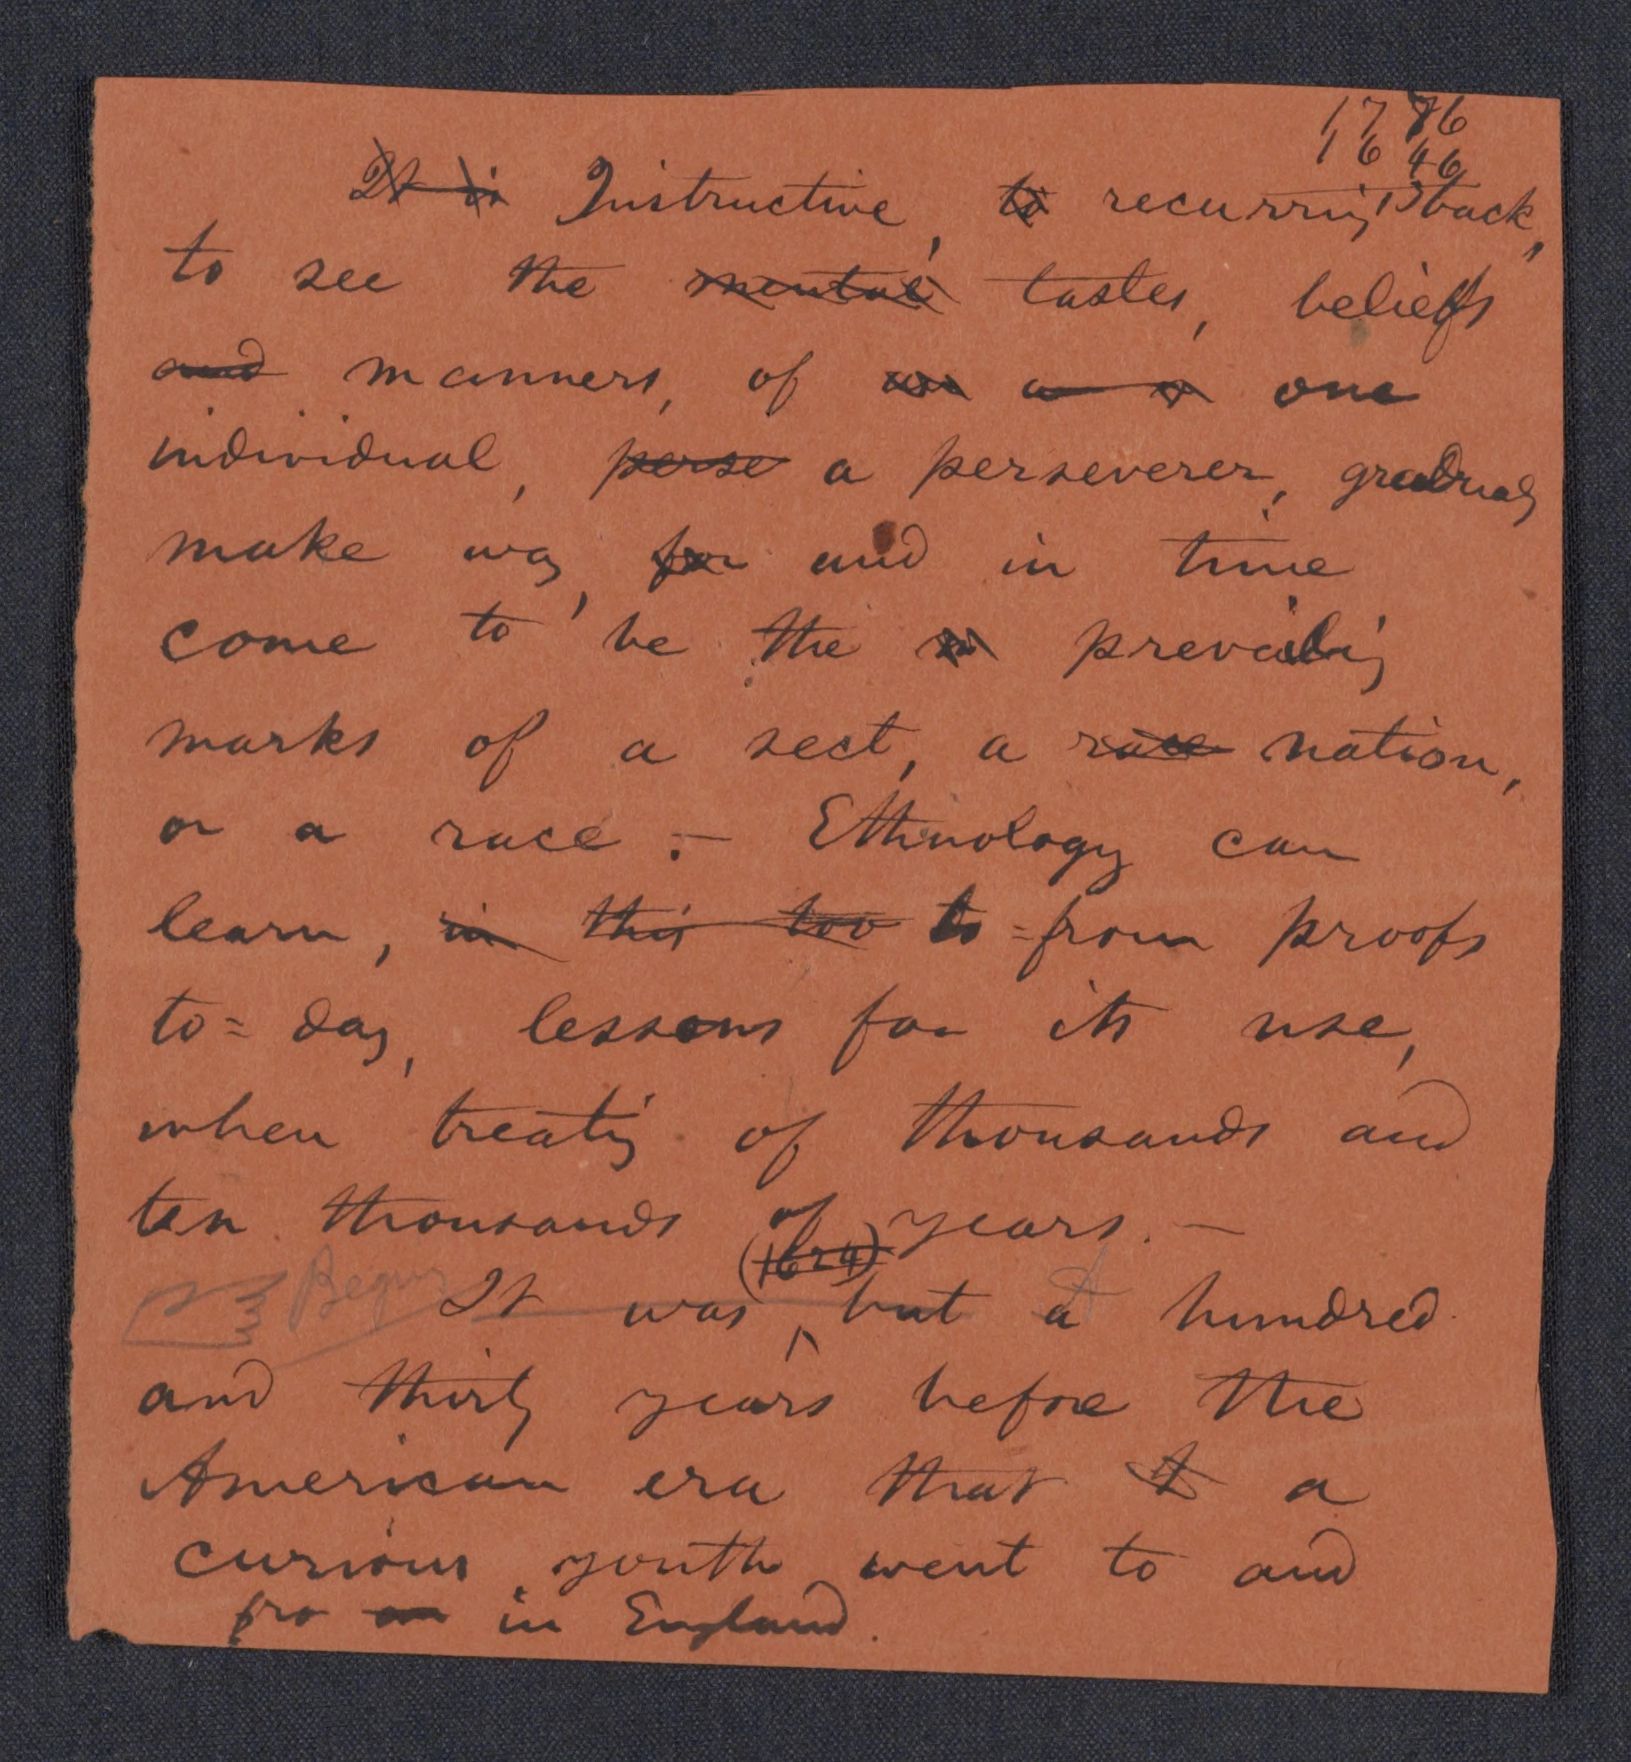 1776
1646
13
It is Instructive, to recurring back,
to see the mental tastes, beliefs
and manners, of one
individual, perse a perseverer, gradually
make way, for and in time
come to be the prevailing
marks of a sect, a race nation,
or a race.— Ethnology can
learn, in this too to from proofs
to=day, lessons for its use,
when treating of thousands and
ten thousands of years.—
(1624)
Begin It was but a hundred
and thirty years before the
American era that a
curious youth went to and
fro on in England.